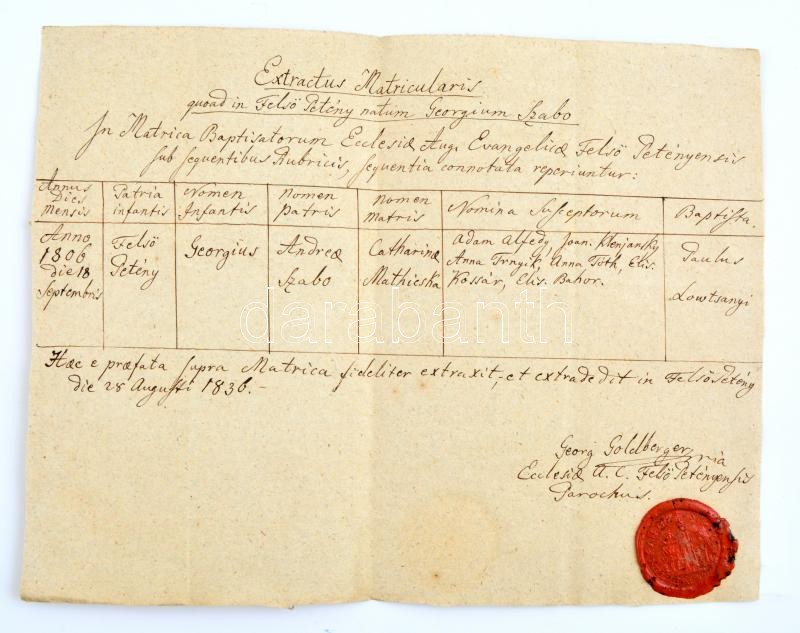 Extractus Matricularis
quoad in Felsö Petény natum Georgium Szabo
In Matrica Baptisatorum Ecclesiæ Aug. Evangelicæ Felsö Petényensis
sub sequentibus Rubricis, sequentia connotata reperiuntur:
Annus Dies mensis
Patria infantis
Nomen Infantis
Nomen Patris
Nomen Matris
Nomina Susceptorum
Baptista.
Anno 1806 die 18 Septembris
Felsö Petény
Georgius
Andreæ Szabo
Catharinæ Mathieska
Adam Alfedy, Joan. Klenjansky
Anna Trnyik, Anna Tóth, Elis.
Kossár, Elis. Bahor.
Paulus Lowtsanyi
Hæc e præfata supra Matrica fideliter extraxit, et extradedit in Felsö Petény
die 28 Augusti 1836.-
Georg Goldberger mia
Ecclesiæ A. C. Felsö Petényensis
Parochus.
darabanth